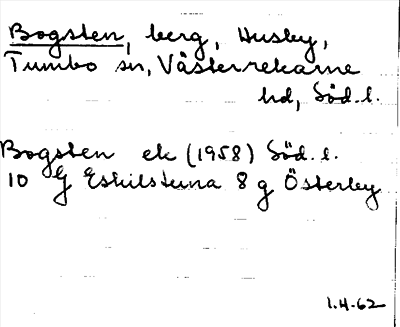 Bogsten, berg, Husby,
Tumbo sn, Västerrekarne
hd, Söd. l.
Bogsten ek (1958) Söd. l.
10 G Eskilstuna 8 g Österby
1.4-62